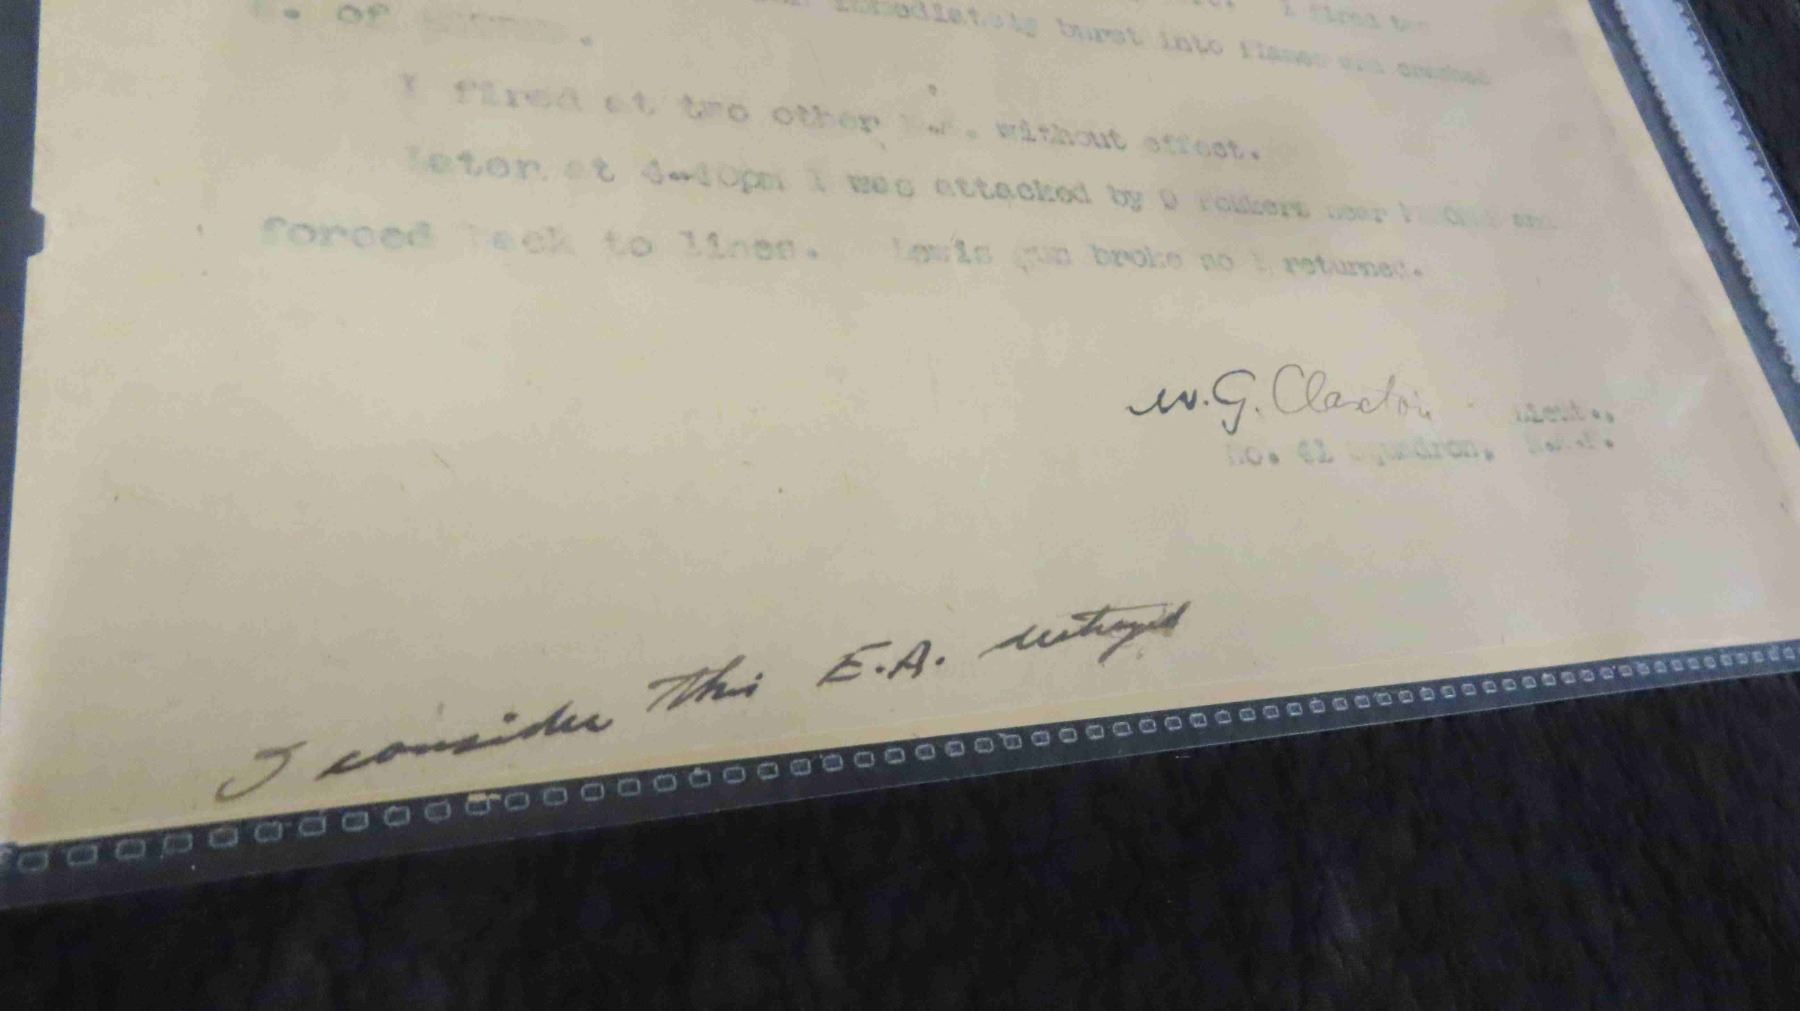 I fired
immediately burst into flames and crashed
E. of
I fired at two other E.A. without effect.
Later at 4-40pm I was attacked by 9 Fokkers near and
forced back to lines. Lewis gun broke so I returned.
W.G. Claxton Lieut.,
No. 41 Squadron, R.A.F.
I consider this E.A. destroyed